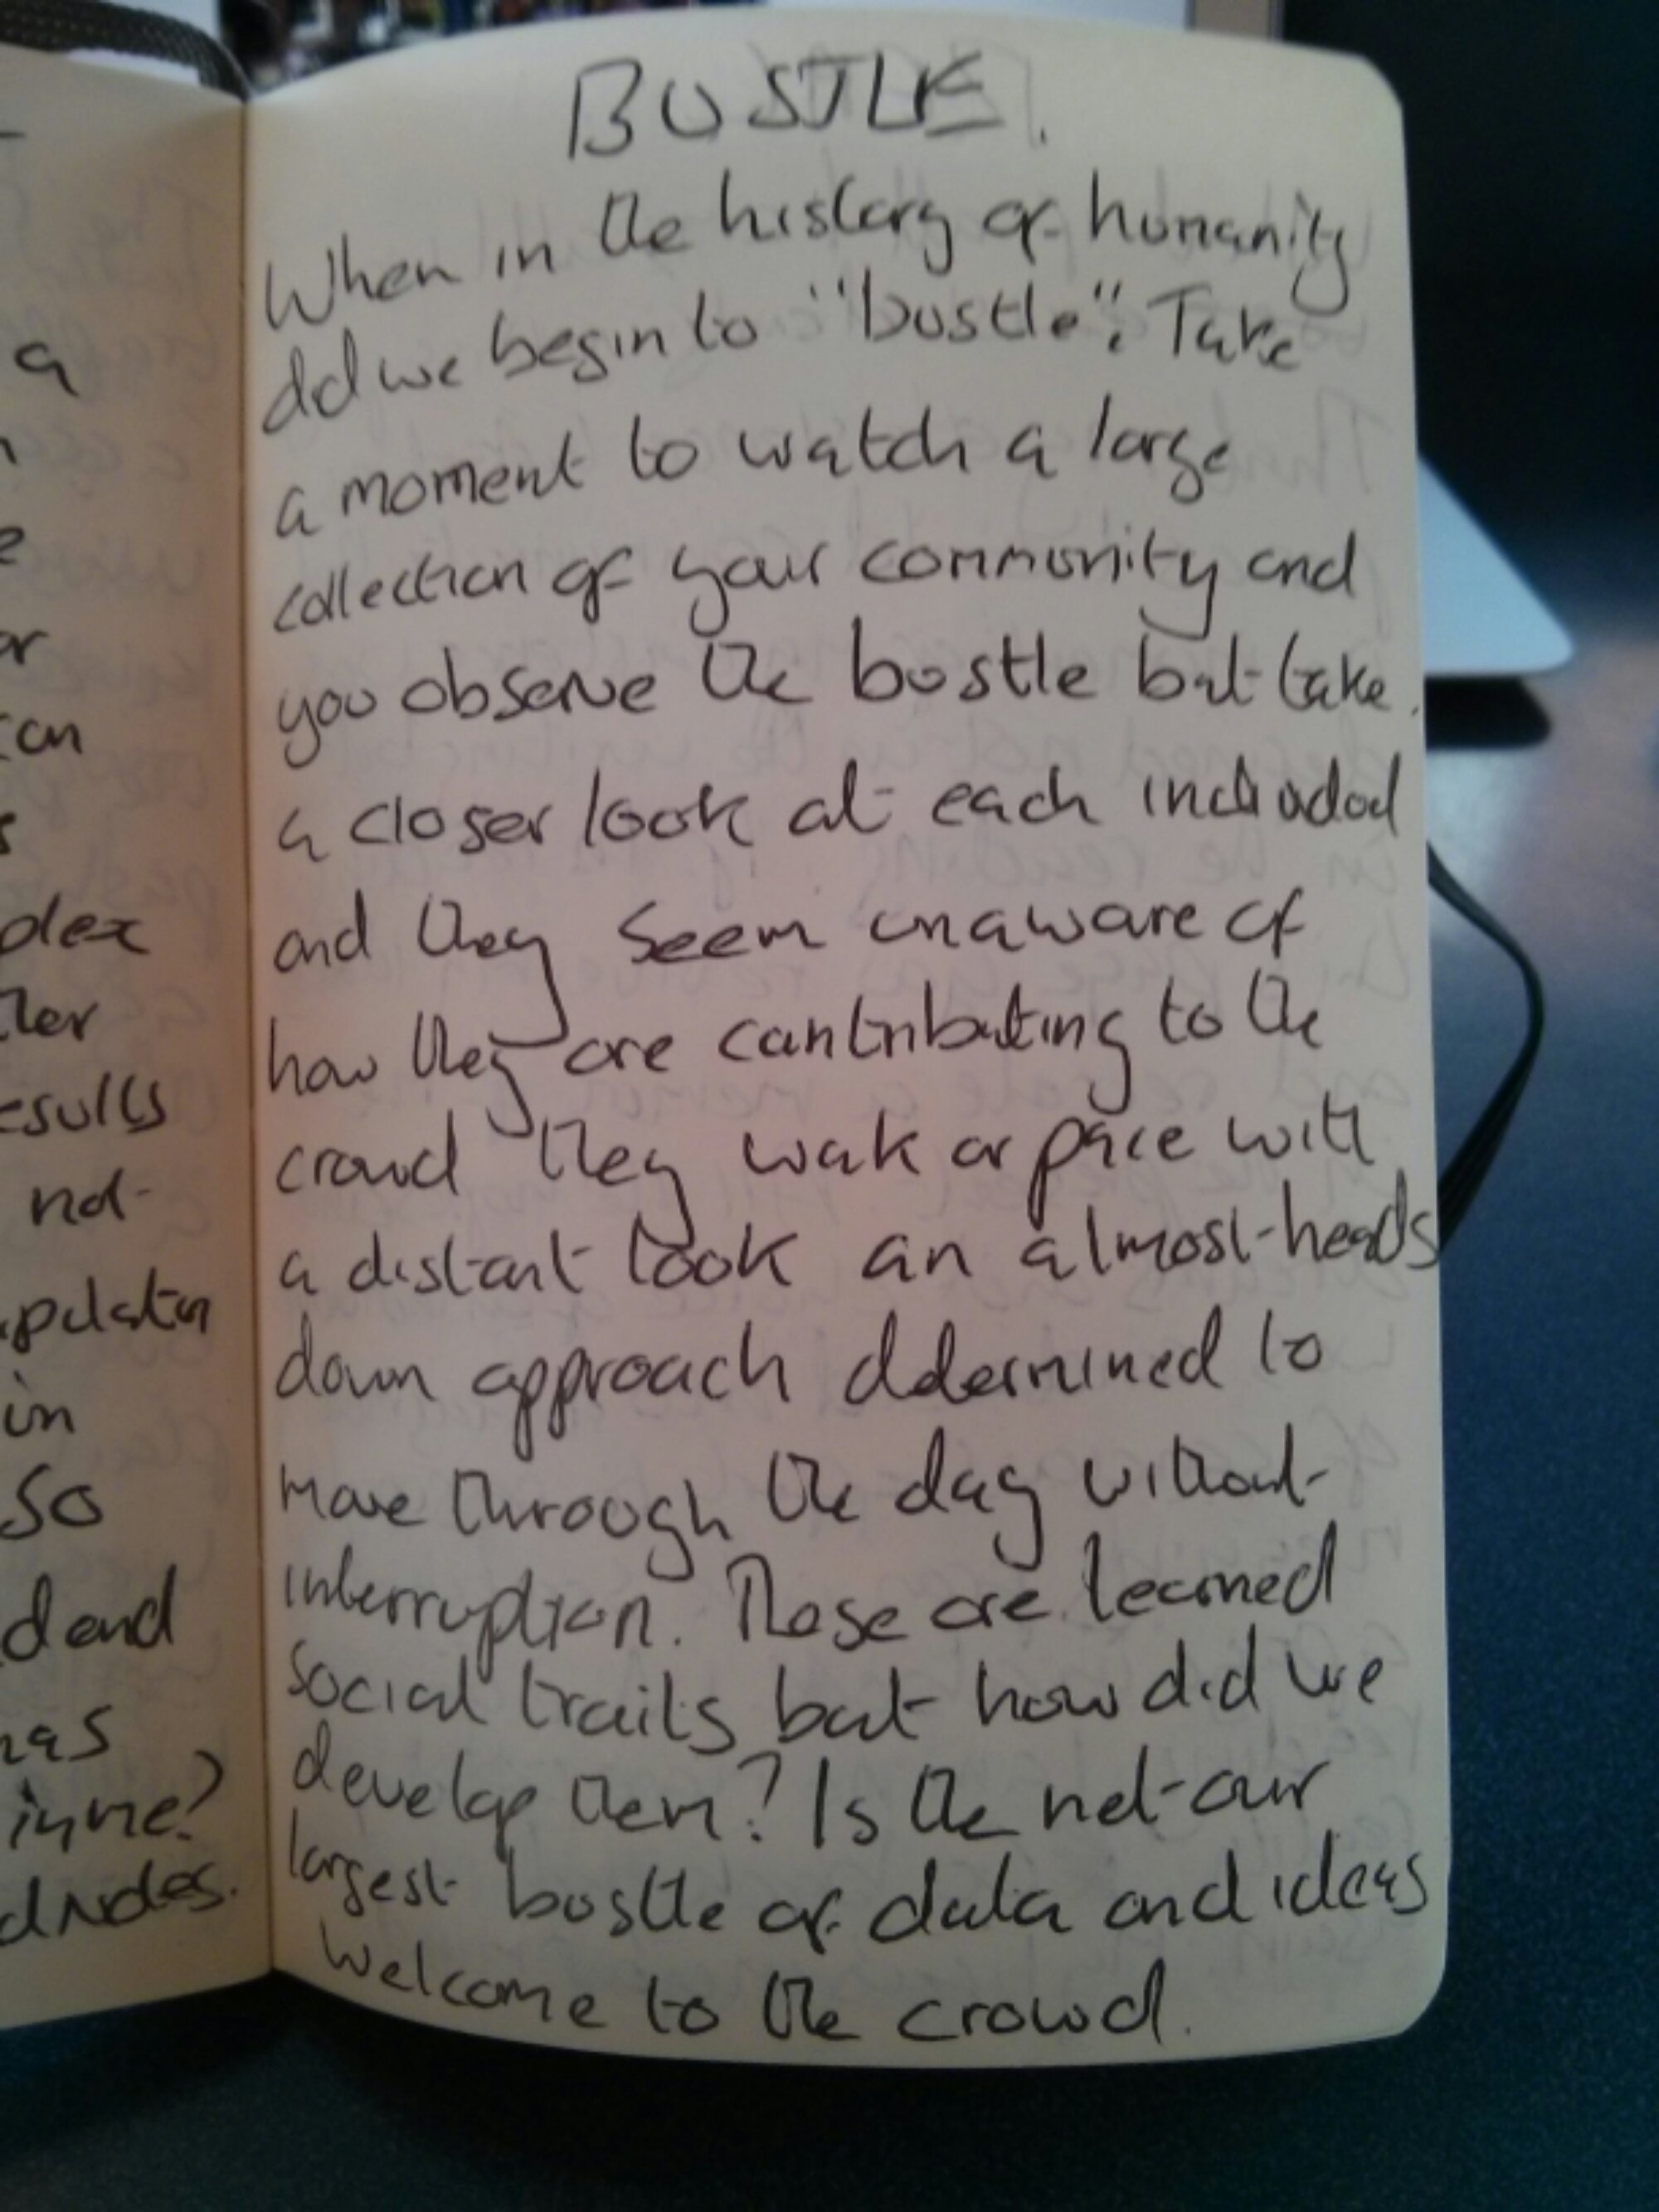 BUSTLE.
When in the history of humanity
did we begin to "bustle". Take
a moment to watch a large
collection of your community and
you observe the bustle but take
a closer look at each
and they seem unaware of
how they are contributing to the
crowd they walk or pace with
a distant look an almost heads
down approach determined to
move through the day without
interruption. These are learned
social traits but how did we
develop them? Is the net our
largest bustle of data and ideas
Welcome to the crowd.
a
so
and
in